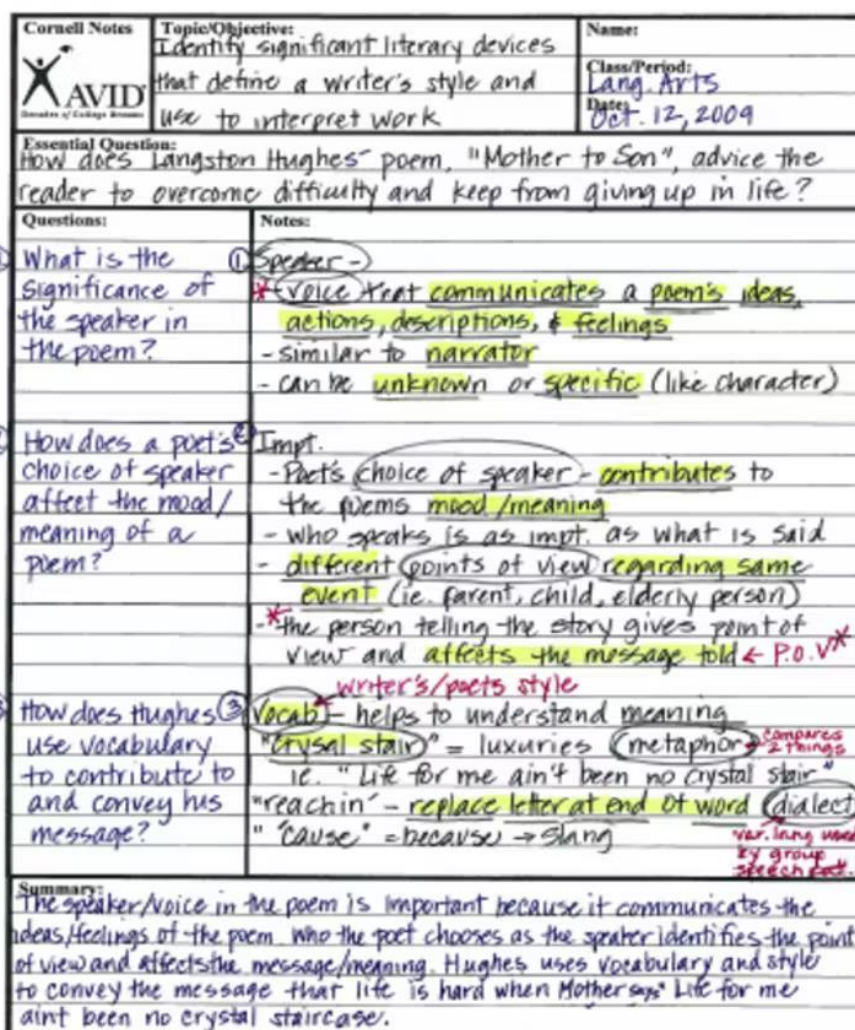 Cornell Notes
AVID
Decades of College Dreams
Topic/Objective:
Identify significant literary devices
that define a writer's style and
use to interpret work
Name:
Class/Period:
Lang. Arts
Date:
Oct. 12, 2009
Essential Question:
How does Langston Hughes' poem, "Mother to Son", advice the
reader to overcome difficulty and keep from giving up in life?
Questions:
What is the
significance of
the speaker in
the poem?
How does a poet's
choice of speaker
affect the mood/
meaning of a
poem?
How does Hughes
use vocabulary
to contribute to
and convey his
message?
Notes:
① Speaker -
* - voice that communicates a poem's ideas,
actions, descriptions, & feelings
- similar to narrator
- can be unknown or specific (like character)
② Impt.
- Poet's choice of speaker - contributes to
the poems mood/meaning
- who speaks is as impt. as what is said
- different points of view regarding same
event (ie. parent, child, elderly person)
- * the person telling the story gives point of
view and affects the message told ← P.O.V *
writer's/poets style
③ Vocab - helps to understand meaning
"crysal stair" = luxuries (metaphor) compares
2 things
ie. "Life for me ain't been no crystal stair"
"reachin' - replace letter at end of word (dialect
" 'cause" = because → slang
var. lang used
by group
speech pat.
Summary:
The speaker/voice in the poem is important because it communicates the
ideas/feelings of the poem. Who the poet chooses as the speaker identifies the point
of view and affects the message/meaning. Hughes uses vocabulary and style
to convey the message that life is hard when Mother says "Life for me
aint been no crystal staircase.